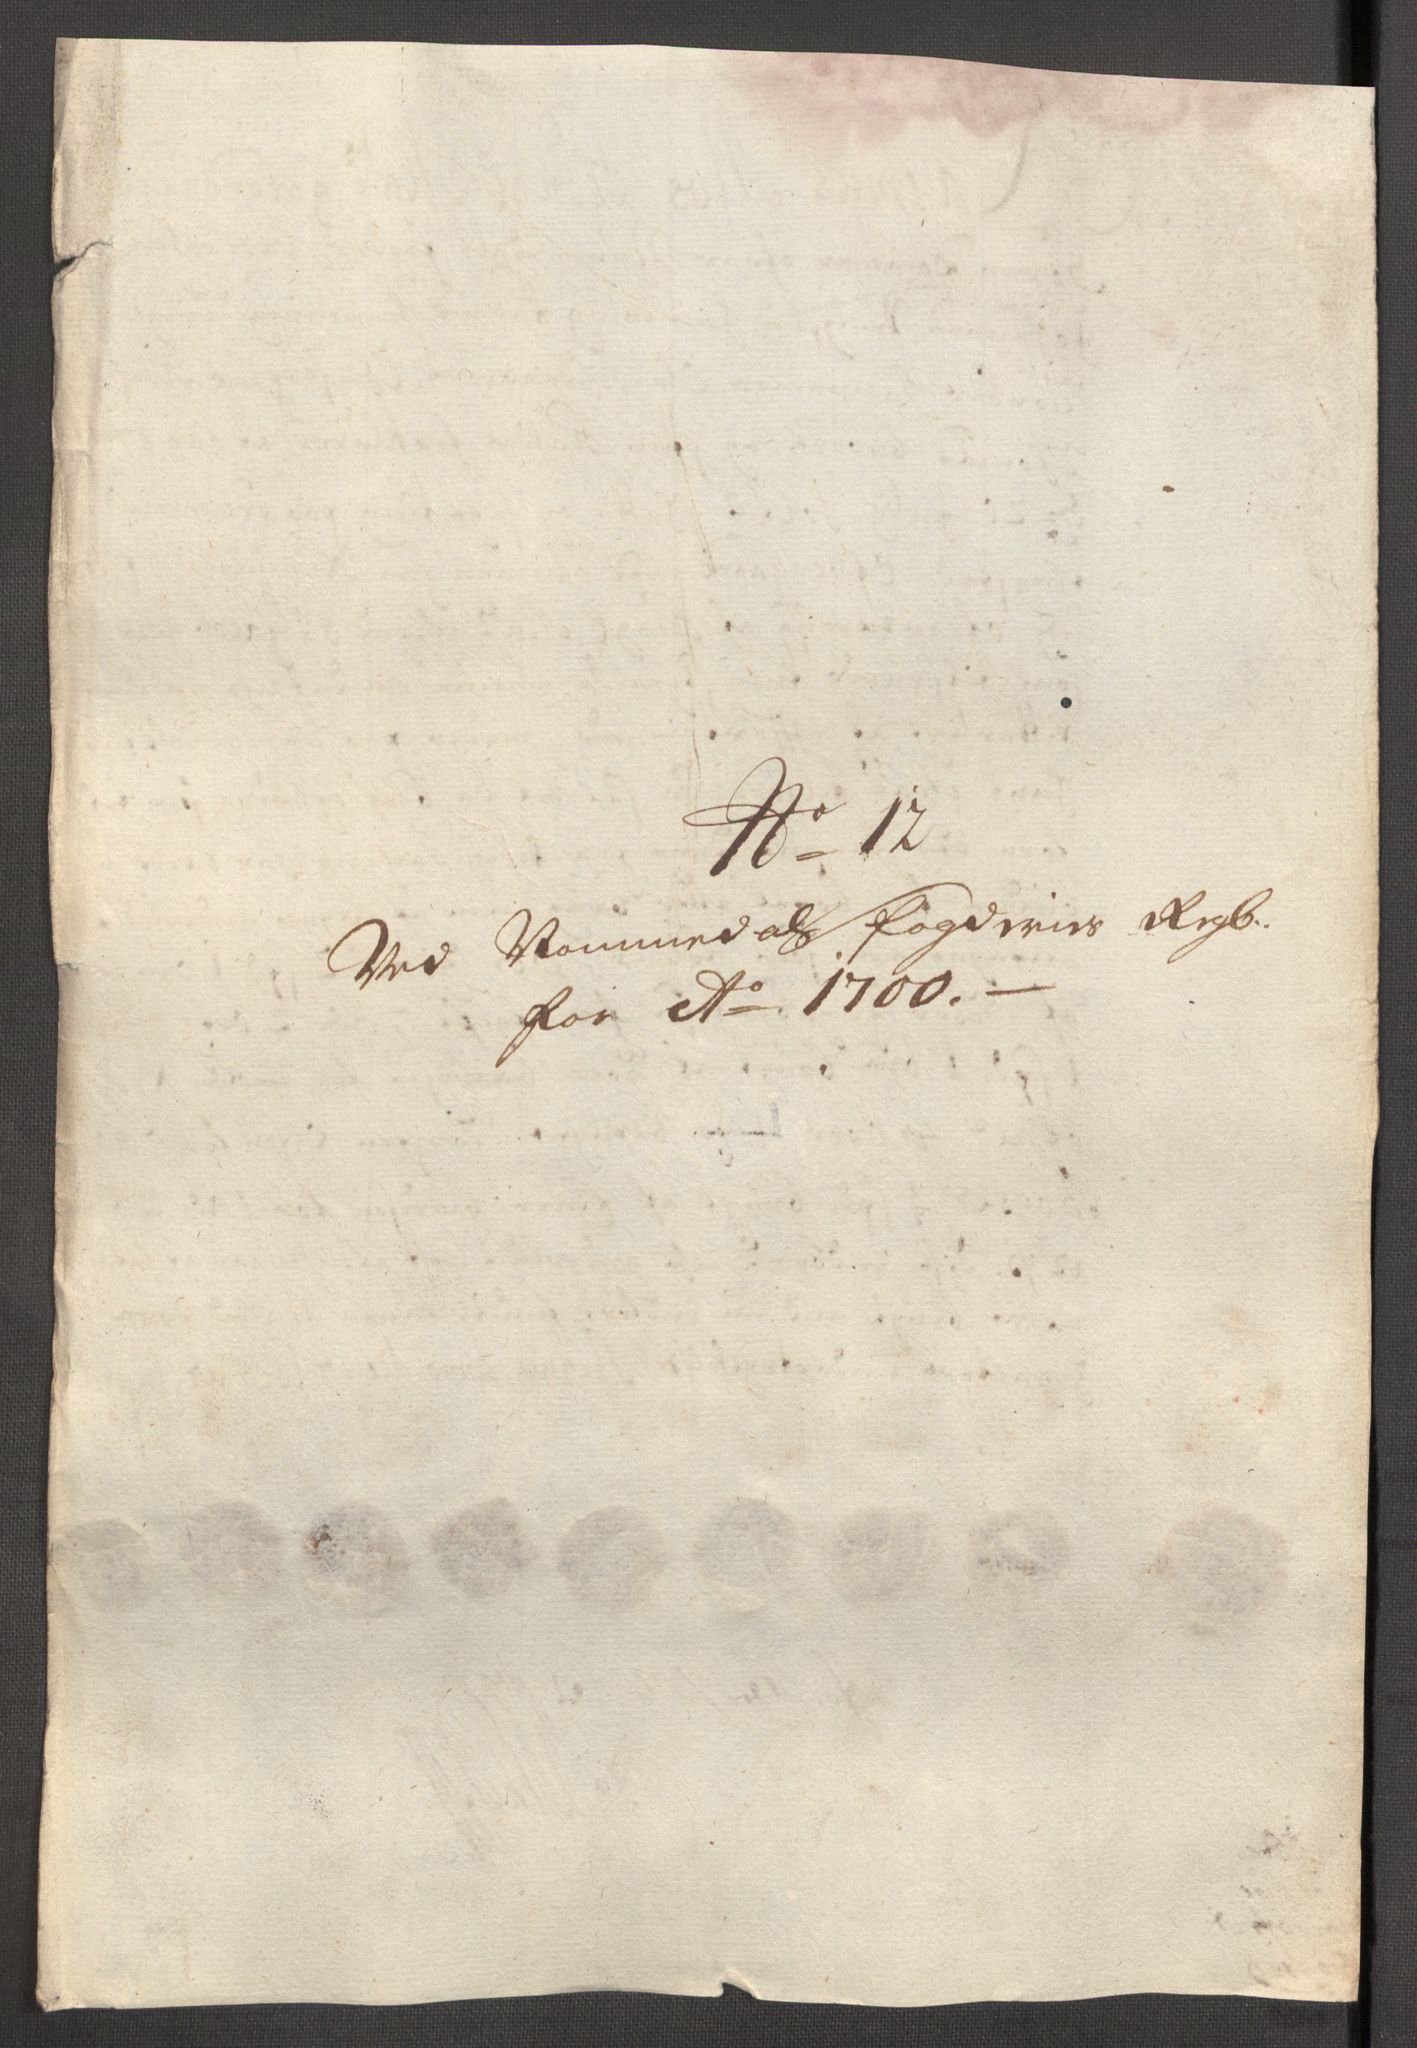 No 12
Ved Nommedals fogderies Regb.
for Ao 1700. —